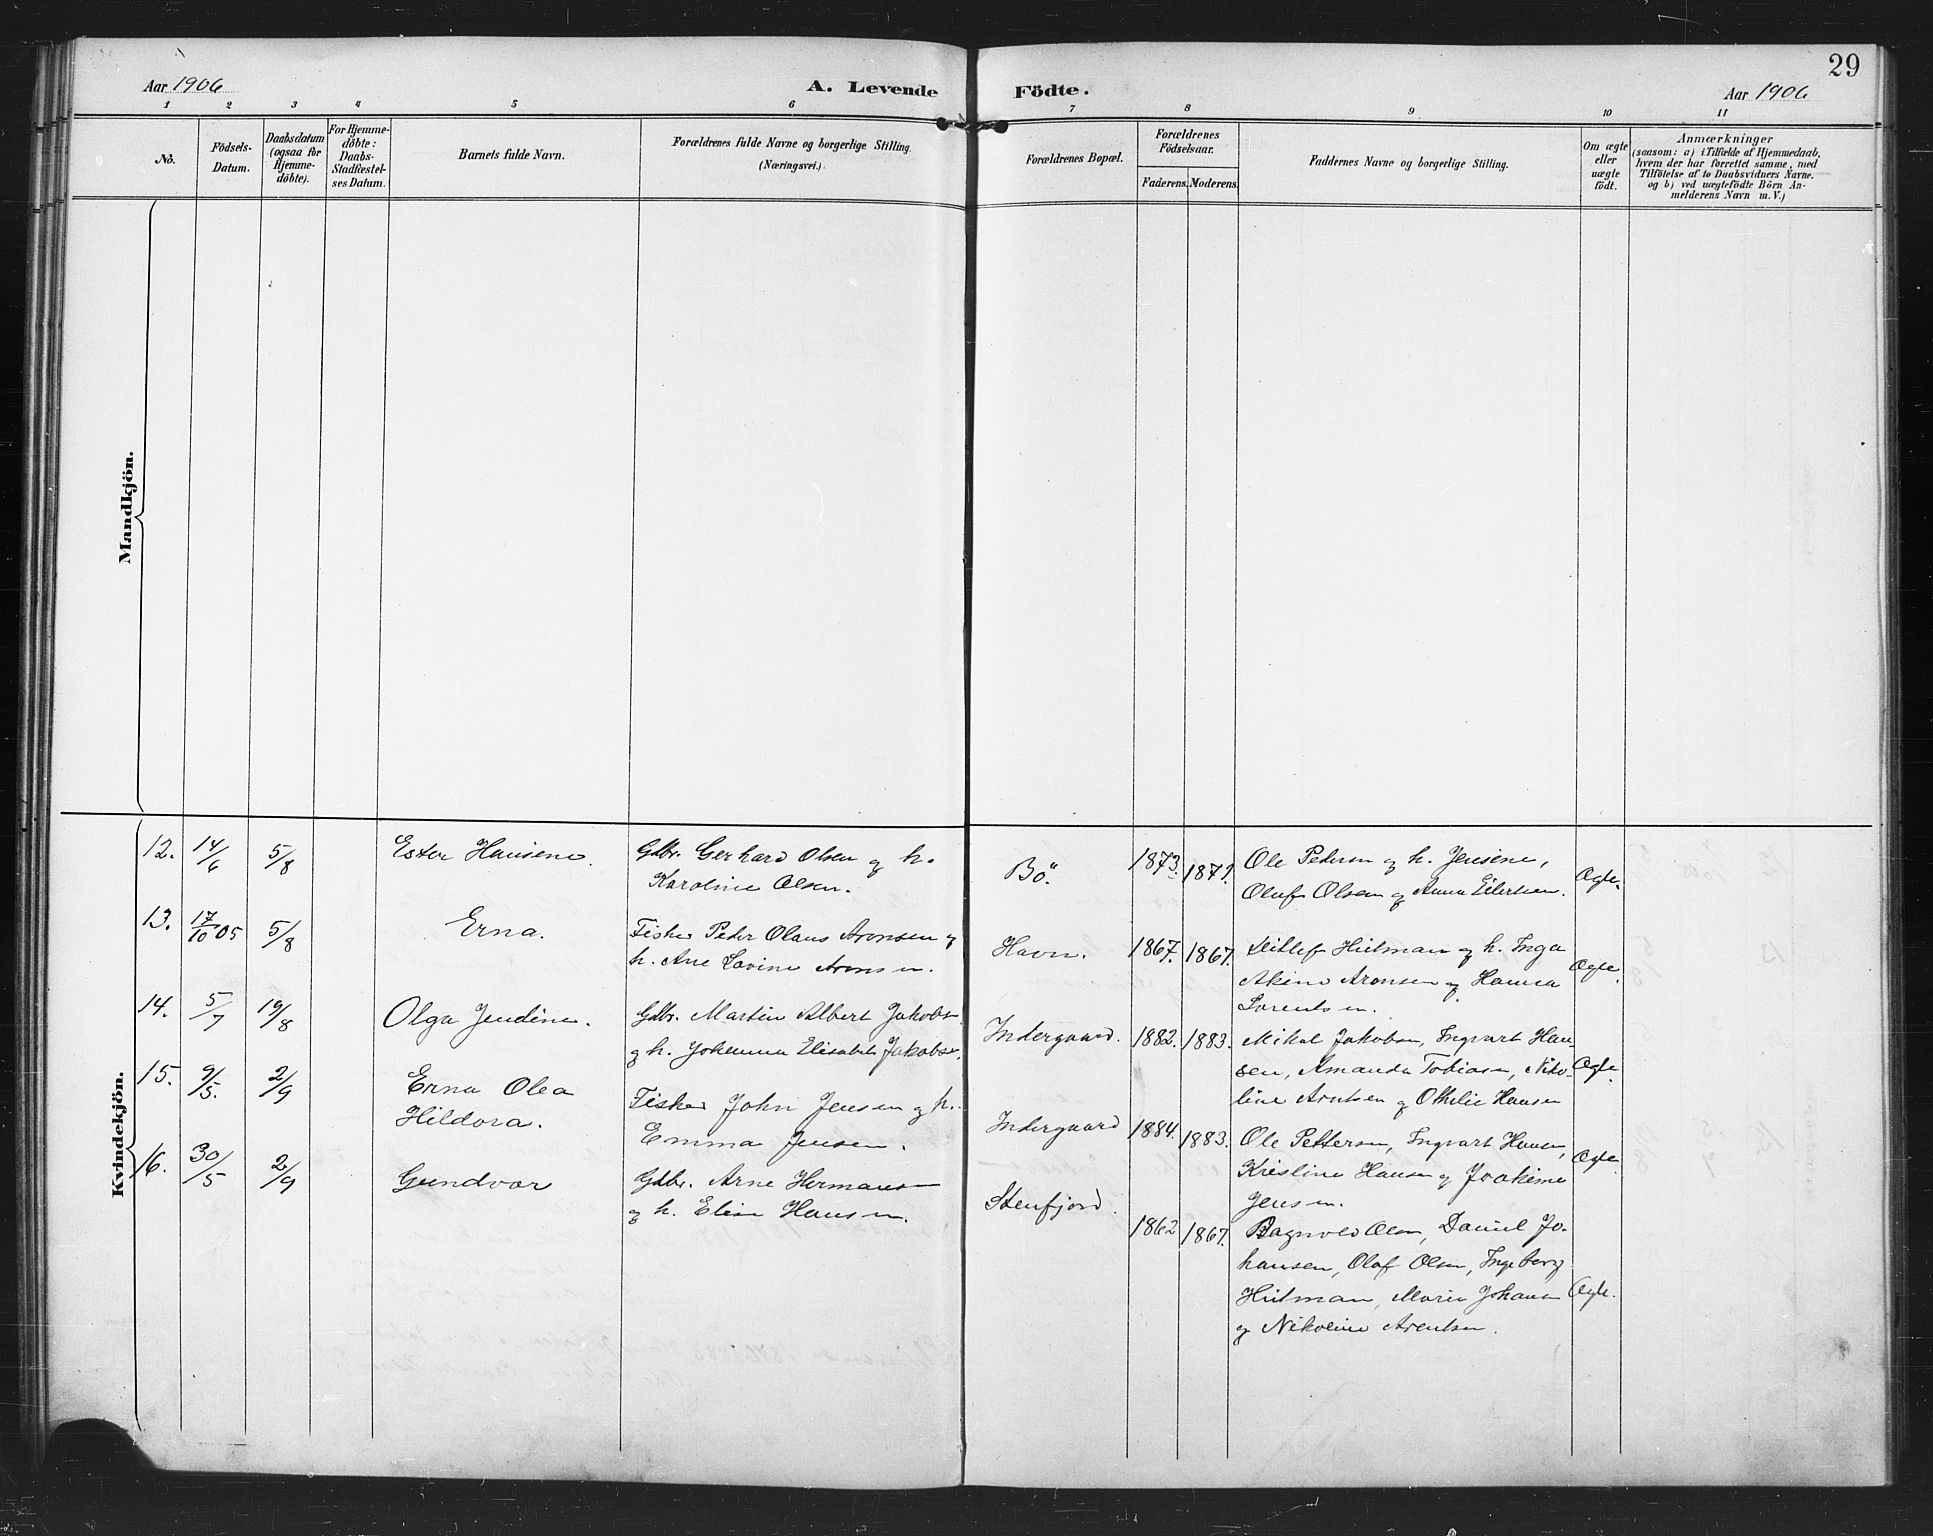 29
Aar 1906
A. Levende
Födte.
Aar 1906
1 2 3 4 5 6 7 8 9 10 11
No.
Födsels-
Datum.
Daabsdatum
(ogsaa for
Hjemme-
döbte).
For Hjemme-
döbte:
Daabs-
Stadfæstel-
ses Datum.
Barnets fulde Navn.
Forældrenes fulde Navne og borgerlige Stilling.
(Næringsvei.)
Forældrenes Bopæl.
Forældrenes
Födselsaar.
Faderens.
Moderens.
Faddernes Navne og borgerlige Stilling.
Om ægte
eller
uægte
födt.
Anmærkninger
(saasom: a) i Tilfælde af Hjemmedaab,
hvem der har forrettet samme, med
Tilföielse af to Daabsvidners Navne.
og b) ved uægtefödte Börn An-
melderens Navn m. V.)
Mandkjön.
Kvindekjön.
12. 14/6 5/8 Ester Hansine.
Gdbr. Gerhard Olsen og h.
Karoline Olsen.
Bö.
1873. 1879.
Ole Pedersen og h. Jensine,
Oluf Olsen og Anna Eilertsen.
Ægte.
13. 17/10 05 5/8 Erna.
Fisker Peder Olaus Aronsen og
h. Ane Lovine Aronsen.
Havn.
1867. 1867.
Ditlef Hutman og h. Inga
Akine Aronsen og Hanna
Lorentsen.
Ægte.
14. 5/7 19/8 Olga Jendine.
Gdbr. Martin Albert Jakobs-
og h. Johanna Elisabet Jakobs-
Indergaard.
1882. 1883.
Mikal Jakobsen, Ingvart Han-
sen, Amanda Tobiasen, Niko-
line Arntsen og Othilie Hansen
Ægte.
15. 9/5. 2/9 Erna Olea
Hildora.
Fisker John Jensen og h.
Emma Jensen.
Indergaard
1884. 1883.
Ole Pettersen, Ingvart Hansen,
Kristine Hansen og Joakime
Jensen.
Ægte
16. 30/5 2/9 Gundvor
Gdbr. Arne Hermansen
og h. Elise Hansen.
Stenfjord.
1862 1867.
Ragnvold Olsen, Daniel Jo-
hansen, Olaf Olsen, Ingeborg
Hutman, Marie Johansen
og Nikoline Arentsen.
Ægte.